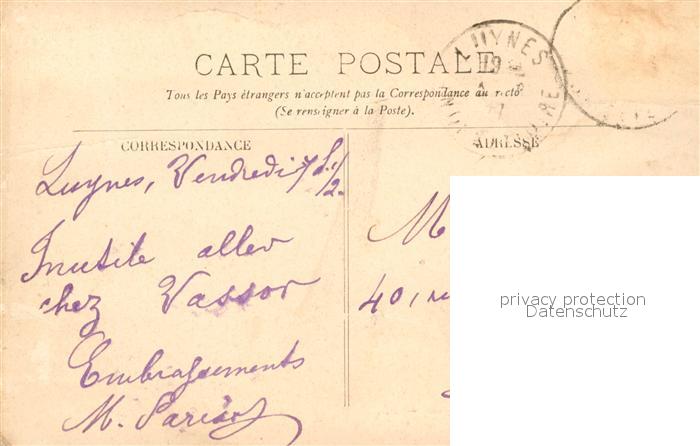 CARTE POSTALE
Tous les Pays étrangers n'acceptent pas la Correspondance au recto
(Se renseigner à la Poste).
LUYNES
19
CORRESPONDANCE
ADRESSE
Luynes, Vendredi 7 h 1/2.
Inutile aller
chez Vassor
Embrassements
M.
M
40, r
privacy protection
Datenschutz